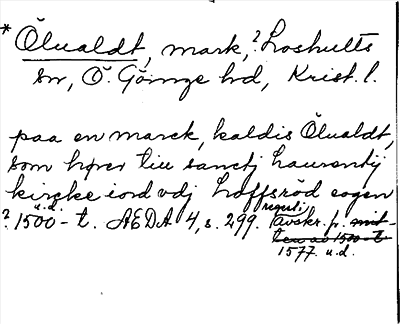 * Ölualdt, mark, ? Loshults
sn, Ö. Göinge hd, Krist. l.
paa en marck, kaldis Ölualdt,
som hører till sanctj laurentij
kircke iord vdj Loffsröd sogen
? 1500-t. u.d. AEDA 4, s. 299. (avskr. fr.
1577 u.d.